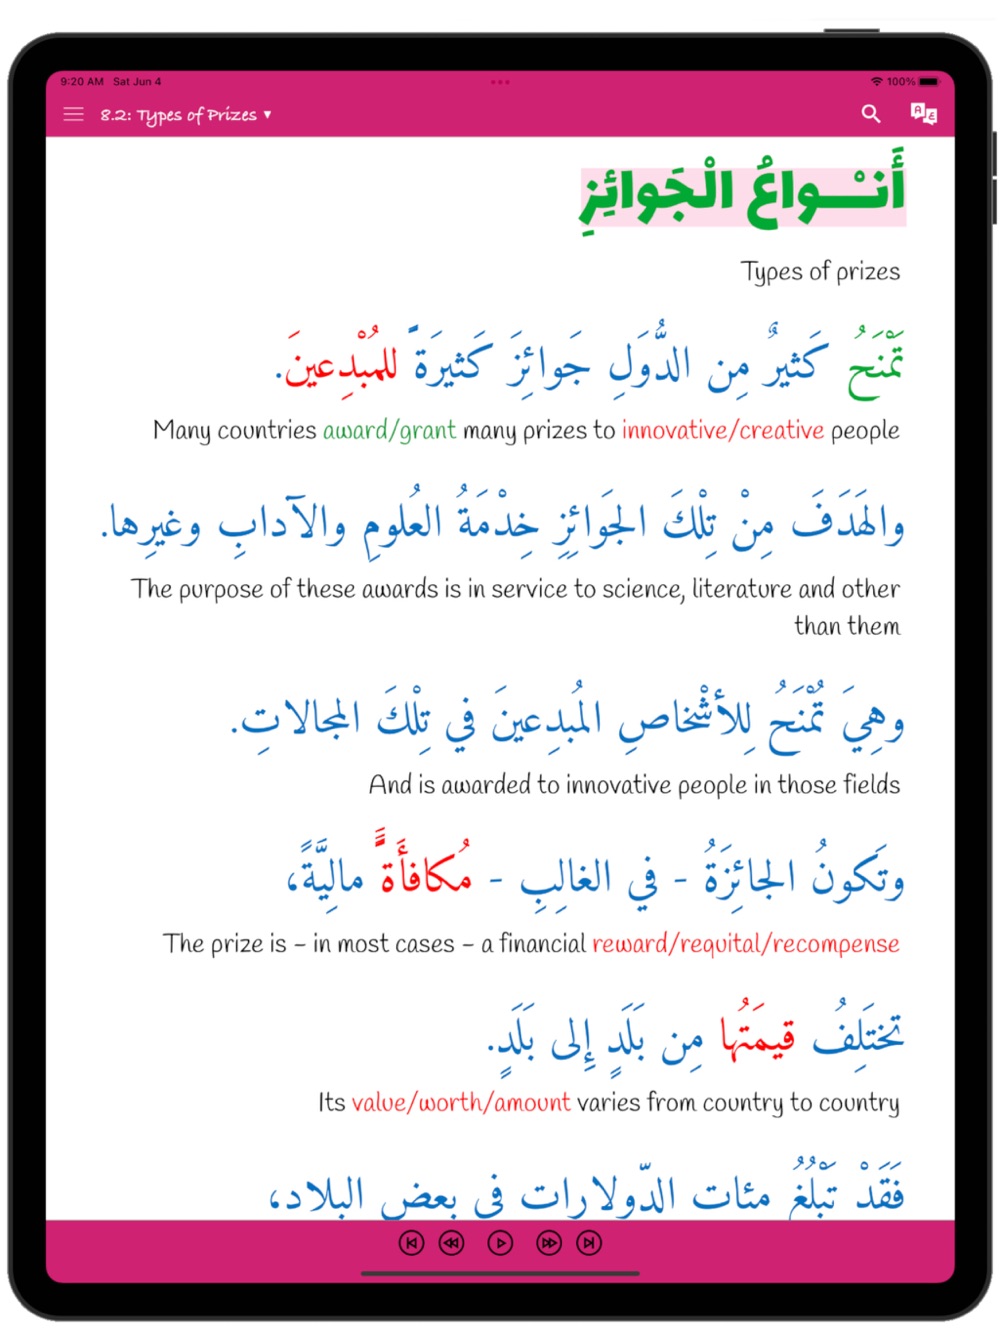 9:20 AM Sat Jun 4
100%
8.2: Types of Prizes ▾
أَنْـواعُ الْجَوائِزِ
Types of prizes
تَمْنَحُ كَثيرٌ مِن الدُّوَلِ جَوائِزَ كَثيرَةً للمُبْدِعينَ.
Many countries award/grant many prizes to innovative/creative people
والهَدَفَ مِنْ تِلْكَ الجَوائِزِ خِدْمَةُ العُلومِ والآدابِ وغيرِها.
The purpose of these awards is in service to science, literature and other
than them
وهِيَ تُمْنَحُ لِلأشْخاصِ المُبدِعينَ في تِلْكَ المجالاتِ.
And is awarded to innovative people in those fields
وتَكونُ الجائِزَةُ - في الغالِبِ - مُكافأَةً مالِيَّةً،
The prize is – in most cases – a financial reward/requital/recompense
تختَلِفُ قيمَتُها مِن بَلَدٍ إِلى بَلَدٍ.
Its value/worth/amount varies from country to country
فَقَدْ تَبْلُغُ مئات الدّولارات في بعض البلاد،